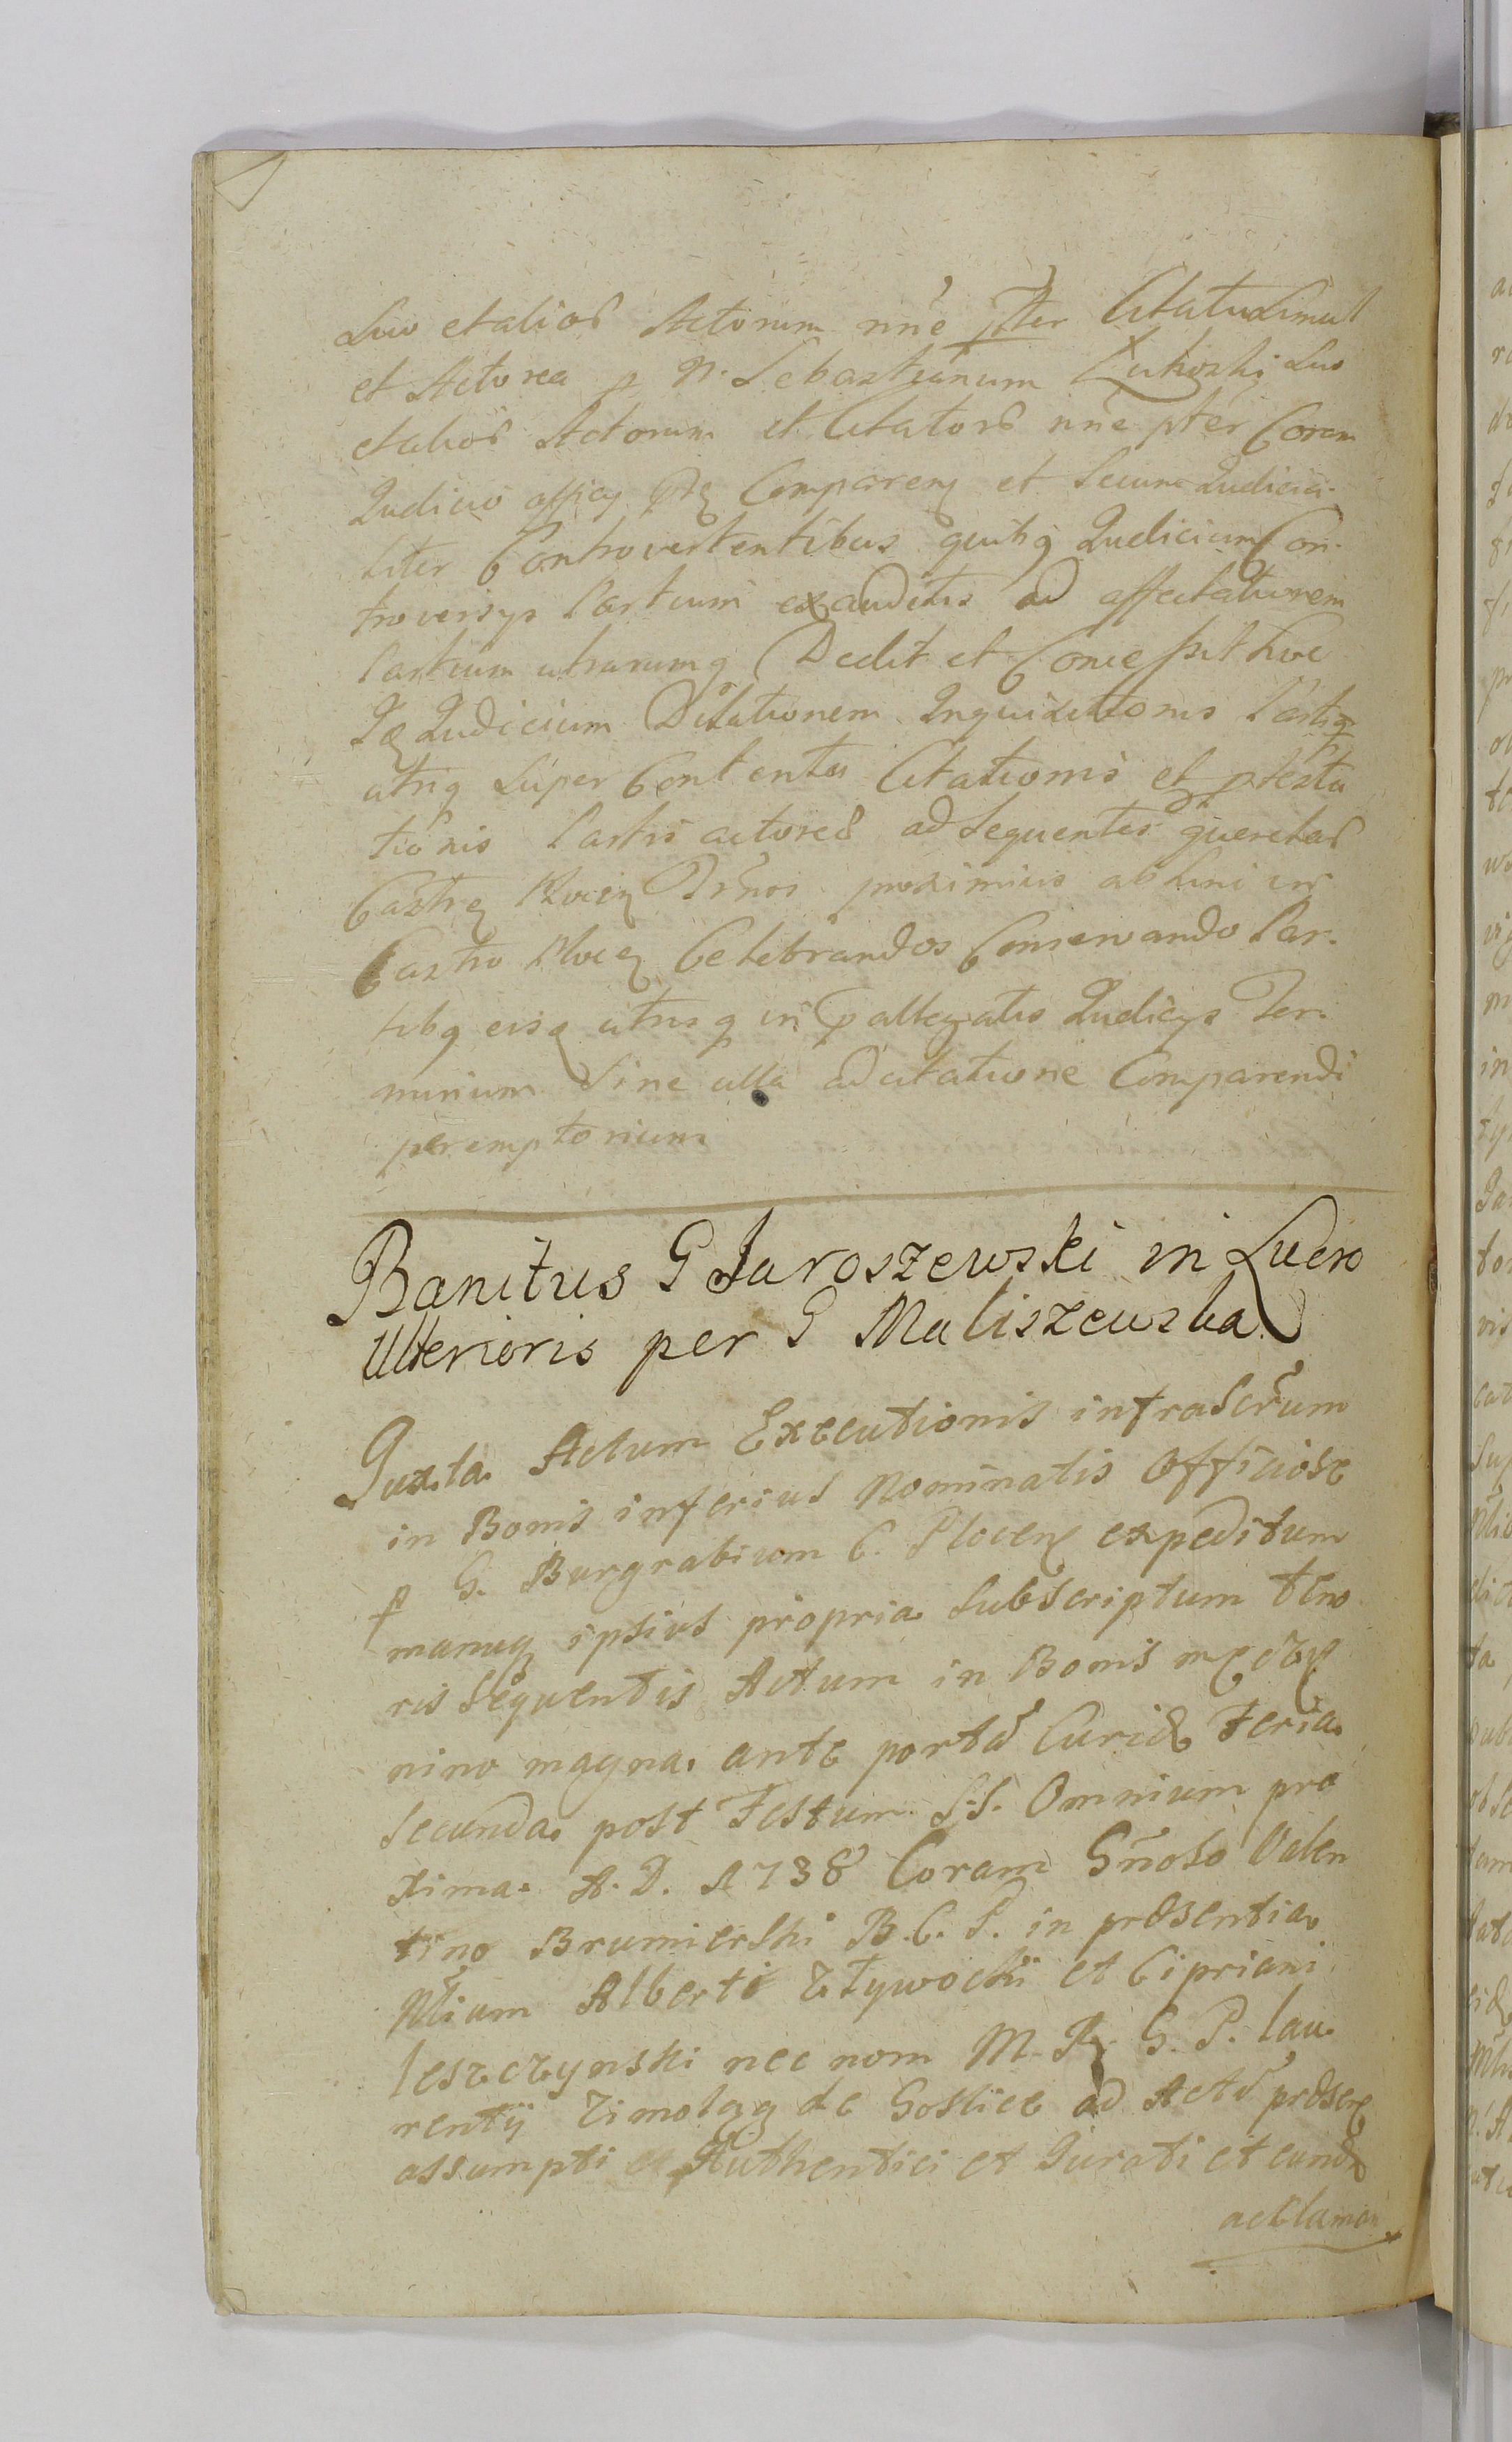 Suo et alior Actorum nne pter Citatus simul
et Actorea p N. Sebastianum Lukoski Suo
et alior Actorum et Citator nne pter Coram
Judicio officy Comparen et Secum Judicia-
liter Controvertentibus quibq Judicium Con-
troversys Partium exauditis ad affectationem
Partium utrarumq Dedit et Concessit hoc
Judicium Dilationem Inquisitionis Partiq
utriq Super Contenta Citationis et ptesta
tionis Partis actoreæ ad Sequentes querelar
Castren Plocen Trnos proximius ab hinc in
Castro Plocen Celebrandos Conservando Par-
tibq eisq utrisq in pallegatis Judicys Ter-
minum Sine ulla adcitatione Comparendi
peremptorium
Banitus G Jaroszewski in Lucro
Ulterioris per G Maliszewska
Juxta Actum Executionis infrascrum
in Bonis inferius Nominatis Officiose
p G. Burgrabium C. Plocen expeditum
manuq ipsius propria Subscriptum teno
ris Sequentis Actum in Bonis męczy
nino magna ante porta Curiæ Feria
Secunda post Festum S.S. Omnium pro
xima A. D. 1738 Coram Gnoso Valen
tino Brumierski B. C. P. in præsentia
Nlium Alberti Zływocki et Cipriani
leszczynski nec nom M. G. P. lau
rentij Zimolag de Goslice ad Act præsen
assumpti Authentici et Jurati et eund
acclaman